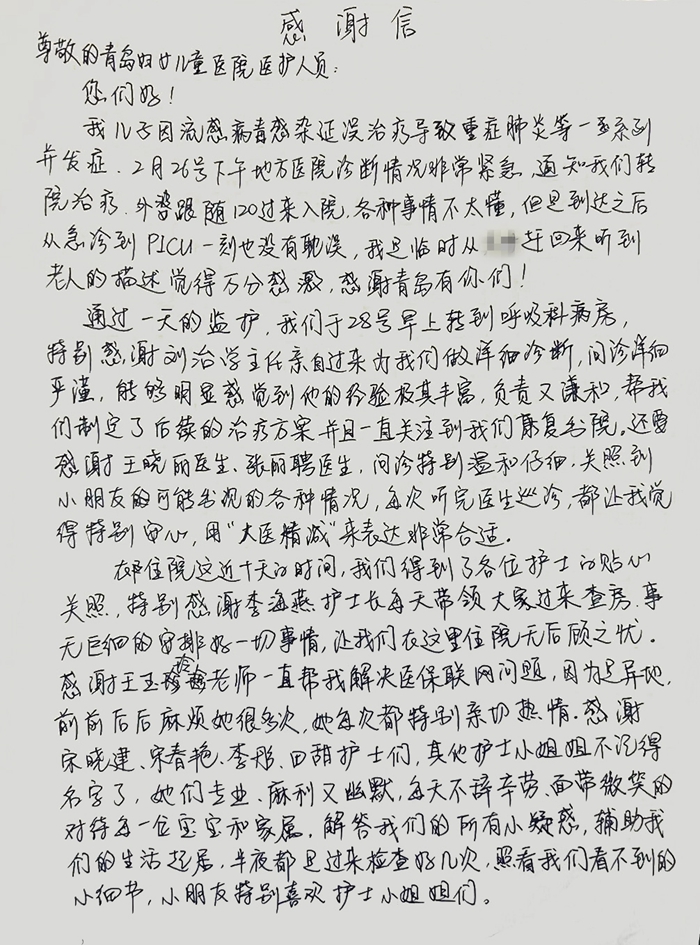 感谢信
尊敬的青岛妇女儿童医院医护人员：
您们好！
我儿子因流感病毒感染延误治疗导致重症肺炎等一系列
并发症．2月26号下午地方医院诊断情况非常紧急，通知我们转
院治疗．外婆跟随120过来入院，各种事情不太懂，但是到达之后
从急诊到PICU一刻也没有耽误，我是临时从 赶回来听到
老人的描述觉得万分感激，感谢青岛有你们！
通过一天的监护，我们于28号早上转到呼吸科病房，
特别感谢刘治学主任亲自过来为我们做详细诊断，问诊详细
严谨，能够明显感觉到他的经验极其丰富，负责又谦和，帮我
们制定了后续的治疗方案并且一直关注到我们康复出院。还要
感谢王晓丽医生、张丽聘医生，问诊特别温和仔细，关照到
小朋友的可能出现的各种情况，每次听完医生巡诊，都让我觉
得特别安心，用“大医精诚”来表达非常合适。
在住院这近十天的时间，我们得到了各位护士的贴心
关照，特别感谢李海燕护士长每天带领大家过来查房，事
无巨细的安排好一切事情，让我们在这里住院无后顾之忧．
感谢王玉玲老师一直帮我解决医保联网问题，因为是异地，
前前后后麻烦她很多次，她每次都特别亲切热情．感谢
宋晓建、宋春艳、李彤、田甜护士们，其他护士小姐姐不记得
名字了，她们专业、麻利又幽默，每天不辞辛劳、面带微笑的
对待每一位宝宝和家属，解答我们的所有小疑惑，辅助我
们的生活起居，半夜都是过来检查好几次，照看我们看不到的
小细节，小朋友特别喜欢护士小姐姐们。